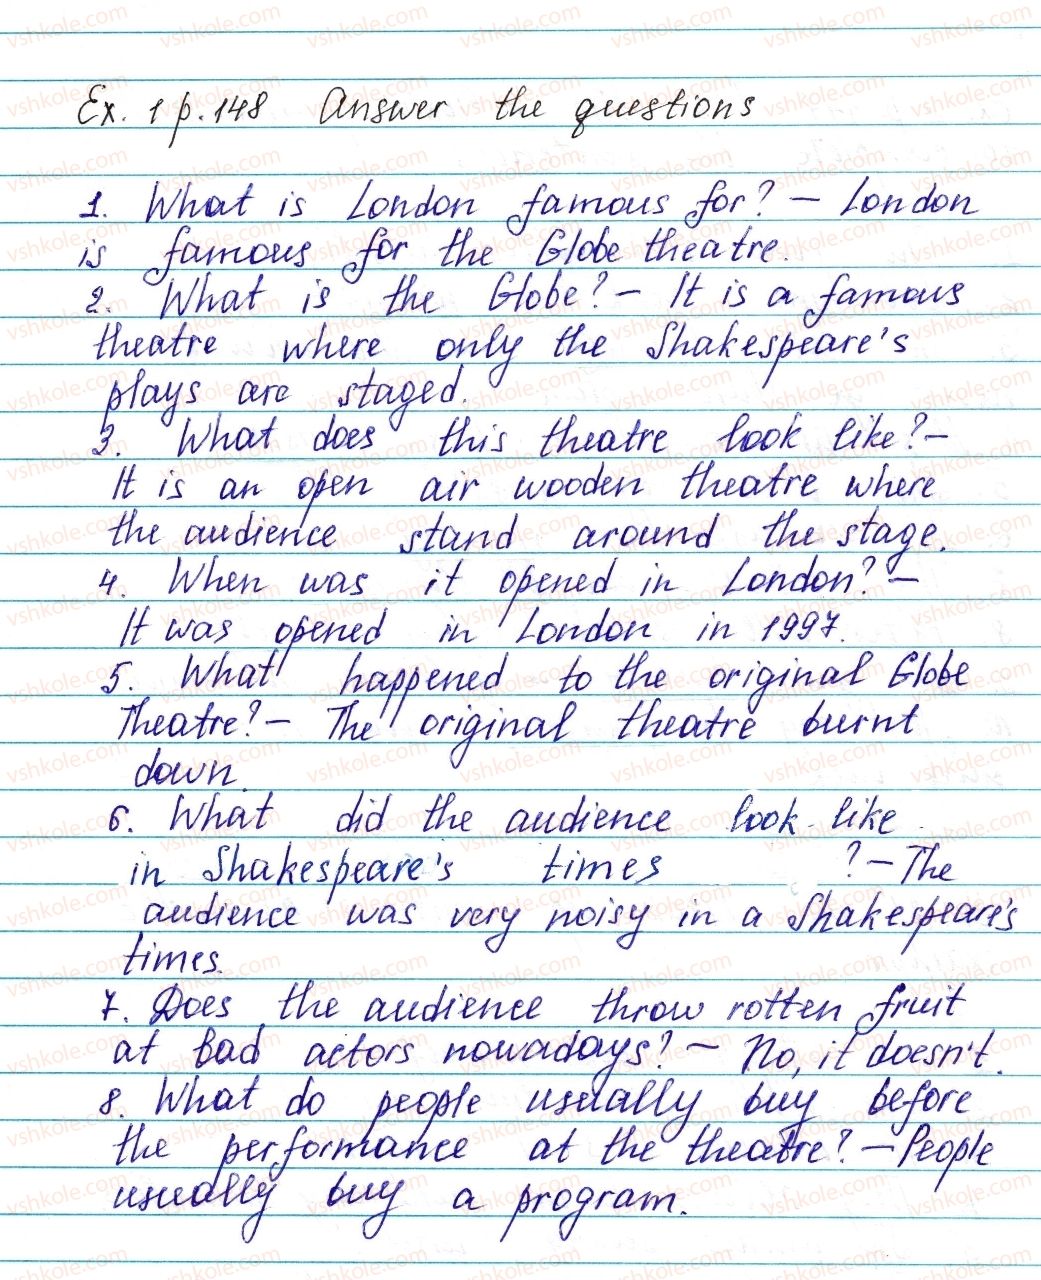 Ex. 1 p. 148 Answer the questions
1. What is London famous for? – London
is famous for the Globe theatre.
2. What is the Globe? – It is a famous
theatre where only the Shakespeare's
plays are staged.
3. What does this theatre look like? –
It is an open air wooden theatre where
the audience stand around the stage.
4. When was it opened in London? –
It was opened in London in 1997.
5. What happened to the original Globe
Theatre? – The original theatre burnt
down.
6. What did the audience look like
in Shakespeare's times ? – The
audience was very noisy in a Shakespeare's
times.
7. Does the audience throw rotten fruit
at bad actors nowadays? – No, it doesn't.
8. What do people usually buy before
the performance at the theatre? – People
usually buy a program.